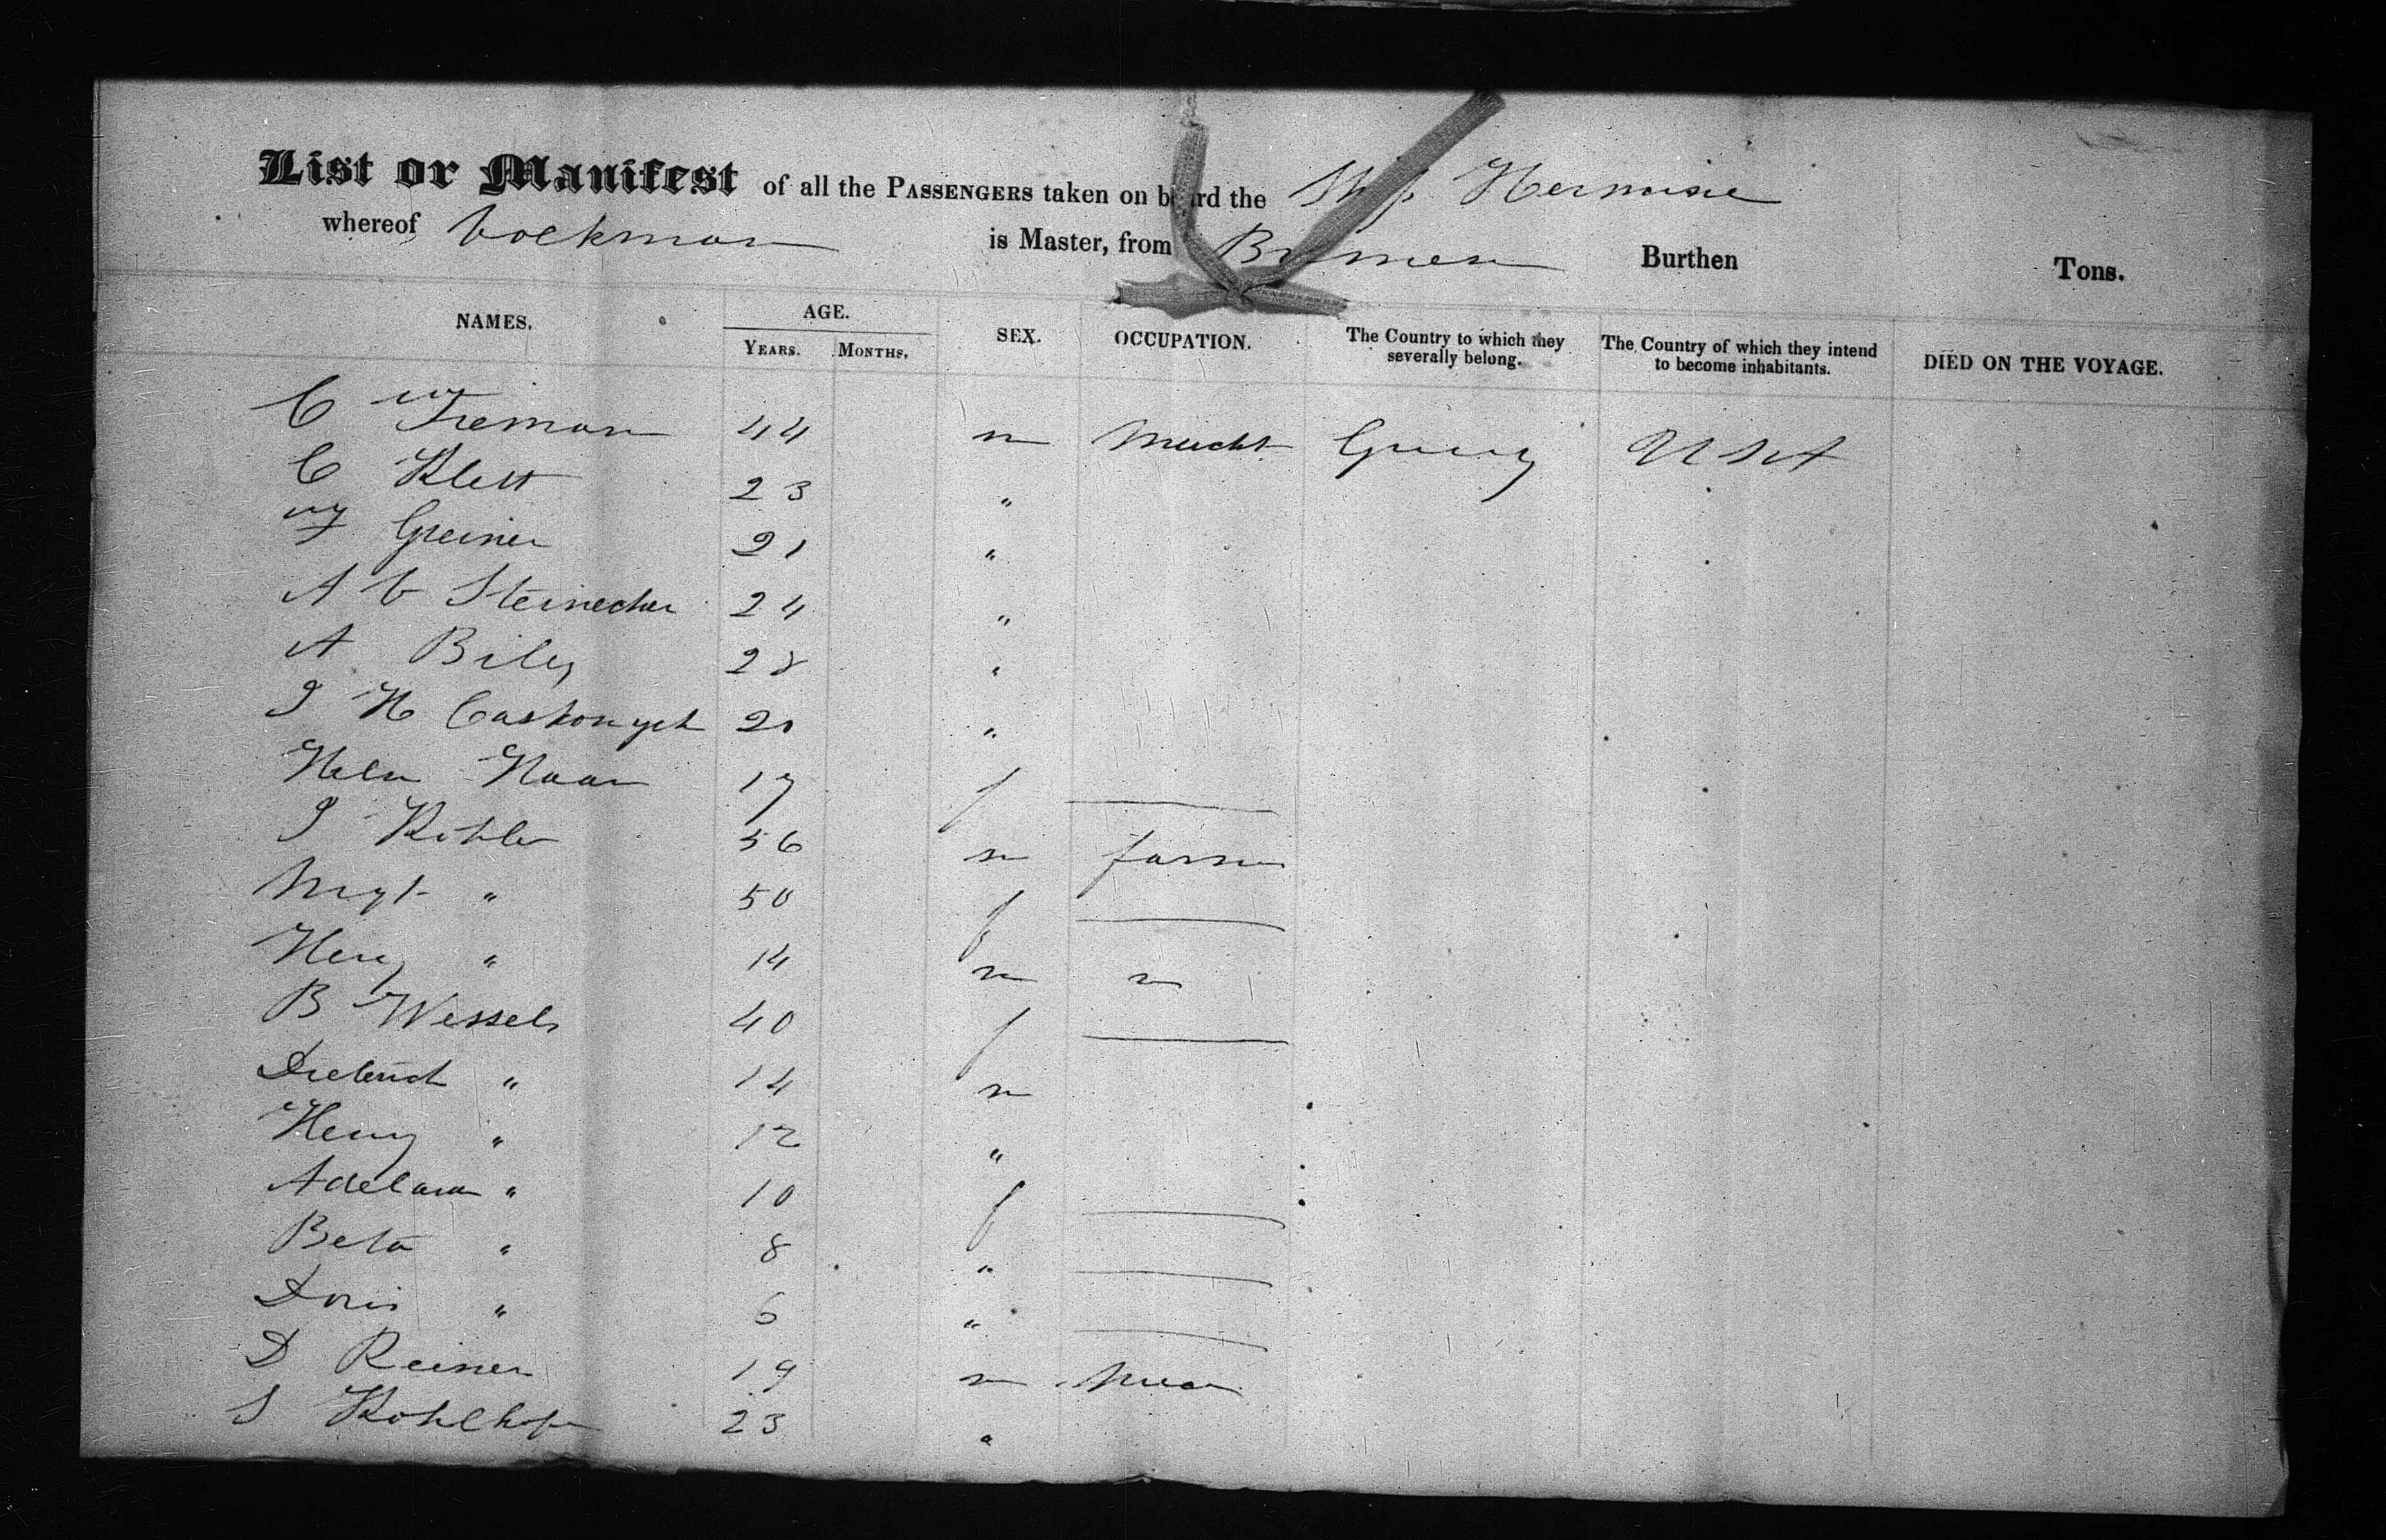 List or Manifest of all the PASSENGERS taken on b rd the Ship Hermine
whereof Volkman is Master, from Bremen Burthen Tons.
NAMES. AGE. YEARS. MONTHS. SEX. OCCUPATION. The Country to which they severally belong. The Country of which they intend to become inhabitants. DIED ON THE VOYAGE.
C 44 m Mercht Germy U S A
C Klett 23 "
Greiner 21 "
A C Steinecker 24 "
A 28 "
J H 20 "
Helen Haar 17 f
J Kohler 56 m farmer
Mgt " 50 f
Henry " 14 m
B Wessels 40 f
Diedrich " 14 m
Henry " 12 "
" 10 f
Beta " 8 "
Doris " 6 "
D Reiner 19 m
23 "